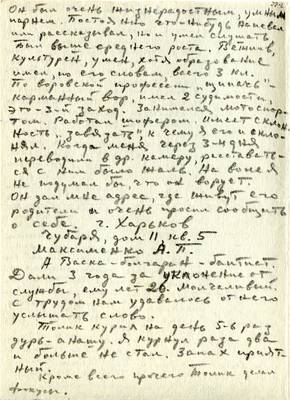 Он был очень жизнерадостным, умным
парнем. Постоянно что-нибудь напевал
или рассказывал, но и умел слушать.
Был выше среднего роста. Вежлив,
культурен, умен, хотя образование
имел, по его словам, всего 3 кл.
По воровской профессии "щипачь" -
карманный вор, имел 2 судимости,
это - 3-й заход. Занимался мотоспор-
том. Работал шофером. Имеет склон-
ность "завязать", к чему я его и скло-
нял. Когда меня через 3-4 дня
переводили в др. камеру, расставать-
ся с ним было жаль. На воле я
не подумал бы, что он ворует.
Он дал мне адрес, где живут его
родители и очень просил сообщить
о себе. г. Харьков
Чубаря, дом 11 кв. 5
Максименко А.П. -
А Васка - болгарин - баптист.
Дали 3 года за уклонение от
службы. Ему лет 26. Молчаливый,
с трудом нам удавалось от него
услышать слово.
Толик курил на день 5-6 раз
дурь-анашу. Я курнул раза два
и больше не стал. Запах прият-
ный.
Кроме всего прочего Толик делал
фокусы.